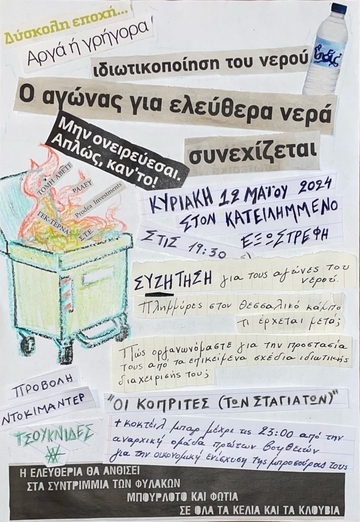 Δύσκολη εποχή...
Αργά ή γρήγορα!
ιδιωτικοποίηση του νερού
Ο αγώνας για ελεύθερα νερά
συνεχίζεται
Μην ονειρεύεσαι.
Απλώς, καν'το!
ΚΥΡΙΑΚΗ 12 ΜΑΪΟΥ 2024
ΣΤΟΝ ΚΑΤΕΙΛΗΜΜΕΝΟ
ΕΞΩΣΤΡΕΦΗ
ΣΤΙΣ 19:30
Investments
ΓΕΚ-ΤΕΡΝΑ
Σ.Τ.Ε.
ΣΥΖΗΤΗΣΗ για τους αγώνες του
νερού.
Πλημμύρες στον Θεσσαλικό κάμπο
τι έρχεται μετά;
Πώς οργανωνόμαστε για την προστασία
τους από τα επικείμενα σχέδια ιδιωτικής
διαχείρισής του;
ΠΡΟΒΟΛΗ
ΝΤΟΚΙΜΑΝΤΕΡ
"ΟΙ ΚΟΠΡΙΤΕΣ (ΤΩΝ ΣΤΑΓΙΑΤΩΝ)"
ΤΣΟΥΚΝΙΔΕΣ
+ κοκτέιλ μπαρ μέχρι τις 23:00 από την
αναρχική ομάδα πρώτων βοηθειών
για την οικονομική ενίσχυση της μπροσούρας τους
Η ΕΛΕΥΘΕΡΙΑ ΘΑ ΑΝΘΙΣΕΙ
ΣΤΑ ΣΥΝΤΡΙΜΜΙΑ ΤΩΝ ΦΥΛΑΚΩΝ
ΜΠΟΥΡΛΟΤΟ ΚΑΙ ΦΩΤΙΑ
ΣΕ ΟΛΑ ΤΑ ΚΕΛΙΑ ΚΑΙ ΤΑ ΚΛΟΥΒΙΑ